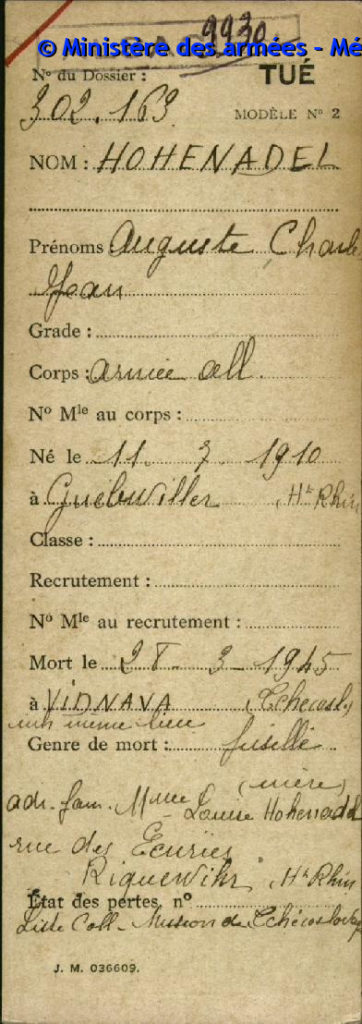 9930
© Ministère des armées - Mé
N° du Dossier :
TUÉ
302.163
MODÈLE N° 2
NOM : HOHENADEL
Prénoms Auguste Charle
Jean
Grade :
Corps : armée all.
N° Mle au corps :
Né le 11. 3. 1910
à Guebwiller Ht Rhin
Classe :
Recrutement :
N° Mle au recrutement :
Mort le 28 - 3 - 1945
à VIDNAVA (Tchécosl.)
inh même lieu
Genre de mort : fusillé
(mère)
adr. fam. Mme Louise Hohenadel
rue des Ecuries
Riquewihr, Ht Rhin
État des pertes n°
Liste Coll - Mission de Tchécoslovaq
J. M. 036609.